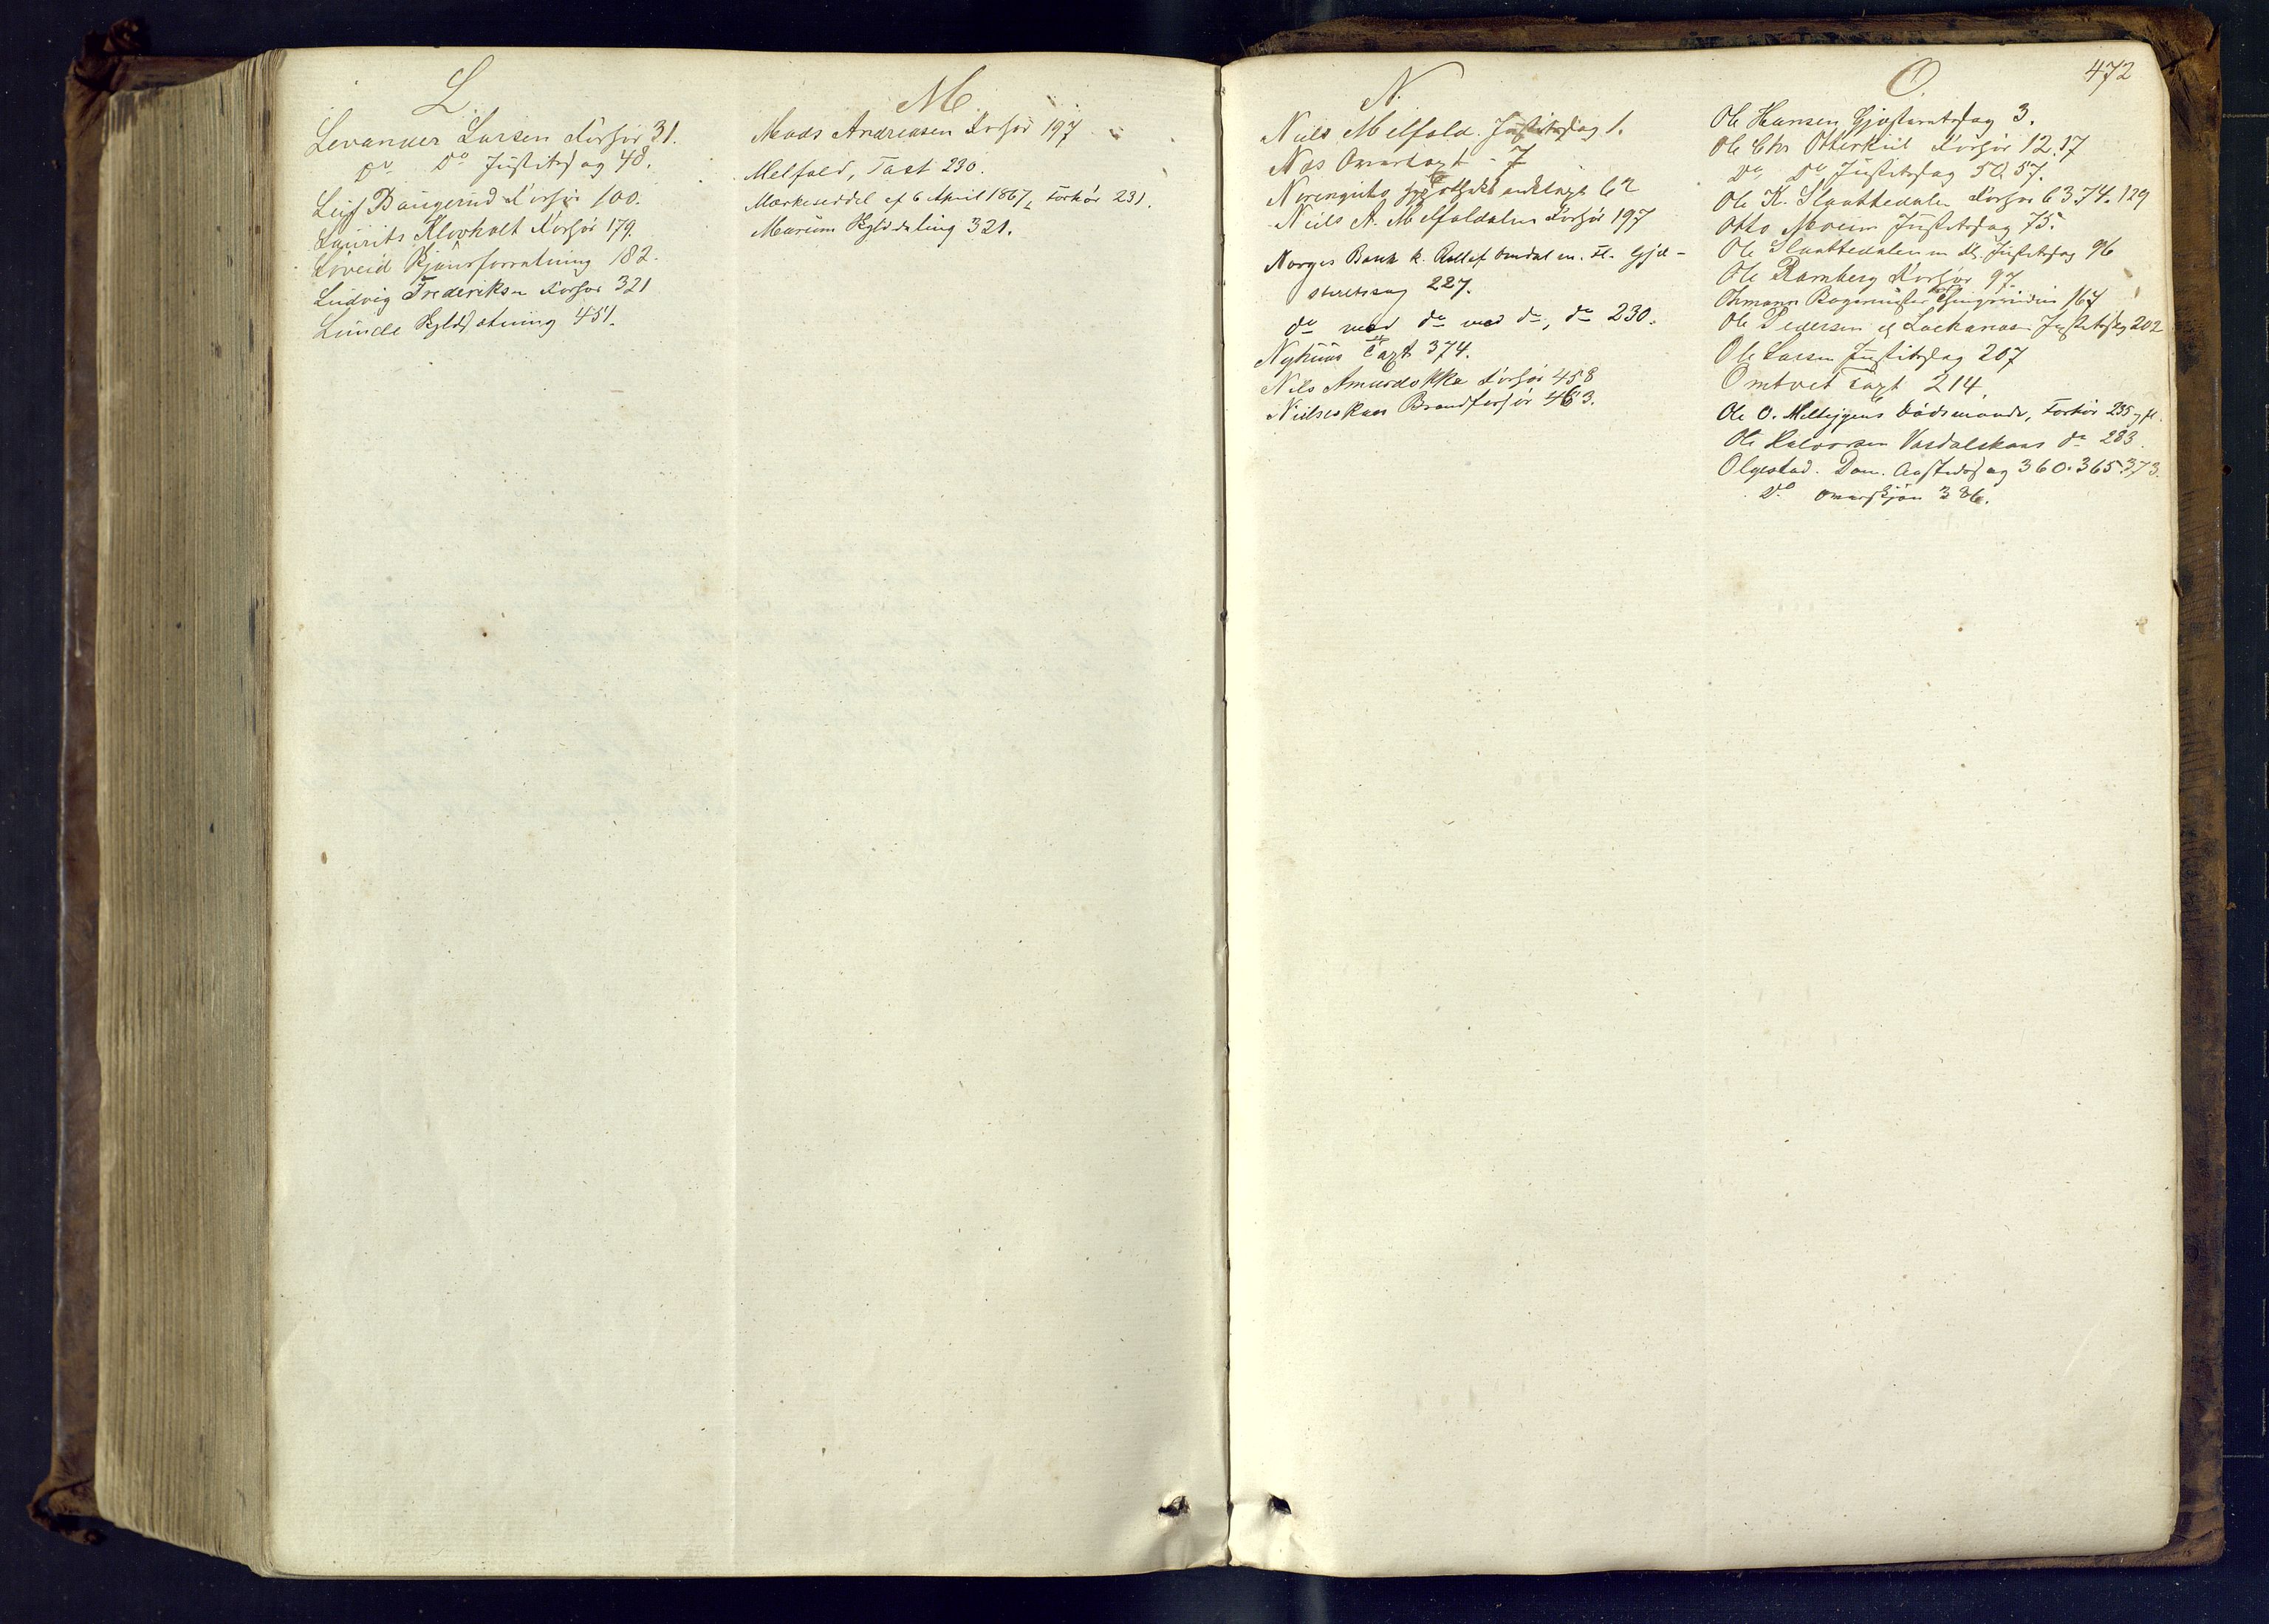 L.
Levander Larsen Forhør 31.
Do. Do Justitssag 48.
Leif Baugerud Forhør 100.
Laurits Klovholt Forhør 179.
Løveid Skjønsforretning 182.
Ludvig Frederiksen Forhør 321
Lunde 451.
M.
Mads Andreasen Forhør 197
Melfald, Taxt 230.
Mærkeseddel af 6 April 1867, Forhør 231.
Mærum Skylddeling 321.
472
N.
Niels Melfald. Justitssag 1.
Næs Omartaxt - 7
62
Niels A. Melfaldalen Forhør 197
Norges Bank k. Rollef Omdal m. Fl. Gjæl-
227.
do mod do med do, do 230.
Nyhuus Taxt 374.
Nils Amurdokka Forhør 458
Nielseskaas Brandforhør 463.
O
Ole Hansen Gjæsteretssag 3.
Ole Chr Otterkiil Forhør 12.17
Do. Do Justitssag 50.57.
Ole K. Slaattedalen Forhør 63 74. 129
Otto Moein Justitssag 75.
Ole Slaattedalen m Fl. Justitssag 96
Ole Ramberg Forhør 97
Ohmann Bagermester 167
Ole Pedersen og Zacharias Justitssag 202
Ole Larsen Justitssag 207
Omtvet Taxt 214
Ole O. Dødsmaade, Forhør 235 og fl.
Ole Halvorsen Vasdalskaas do 283.
Olgestad. Dom. Aastedssag 360. 365. 373.
Do 386.